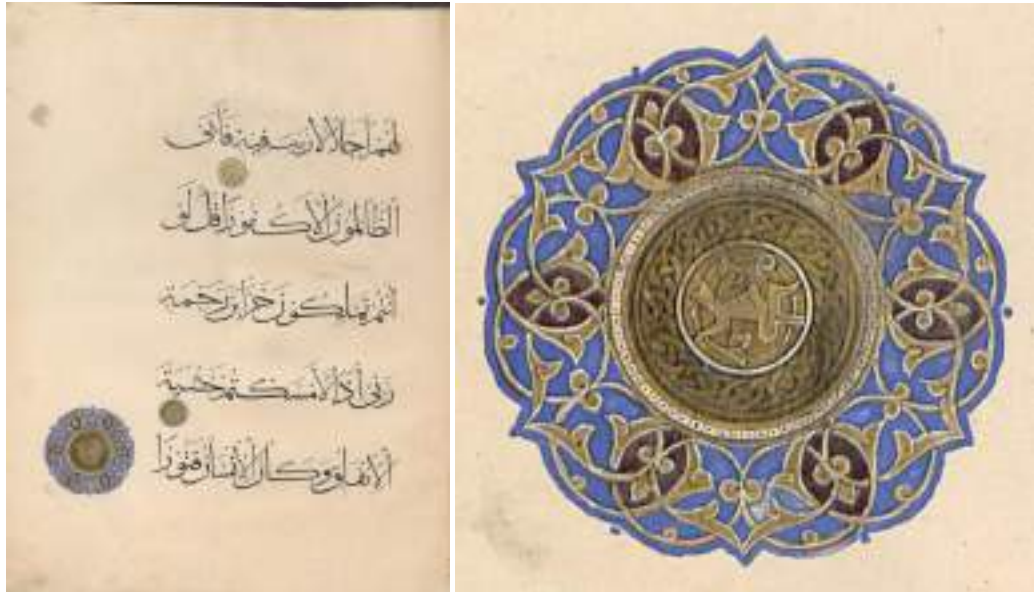 لهم أجلا لا ريب فيه فأبى
الظالمون إلا كفورا قل لو
أنتم تملكون خزائن رحمة
ربي إذا لأمسكتم خشية
الإنفاق وكان الإنسان قتورا